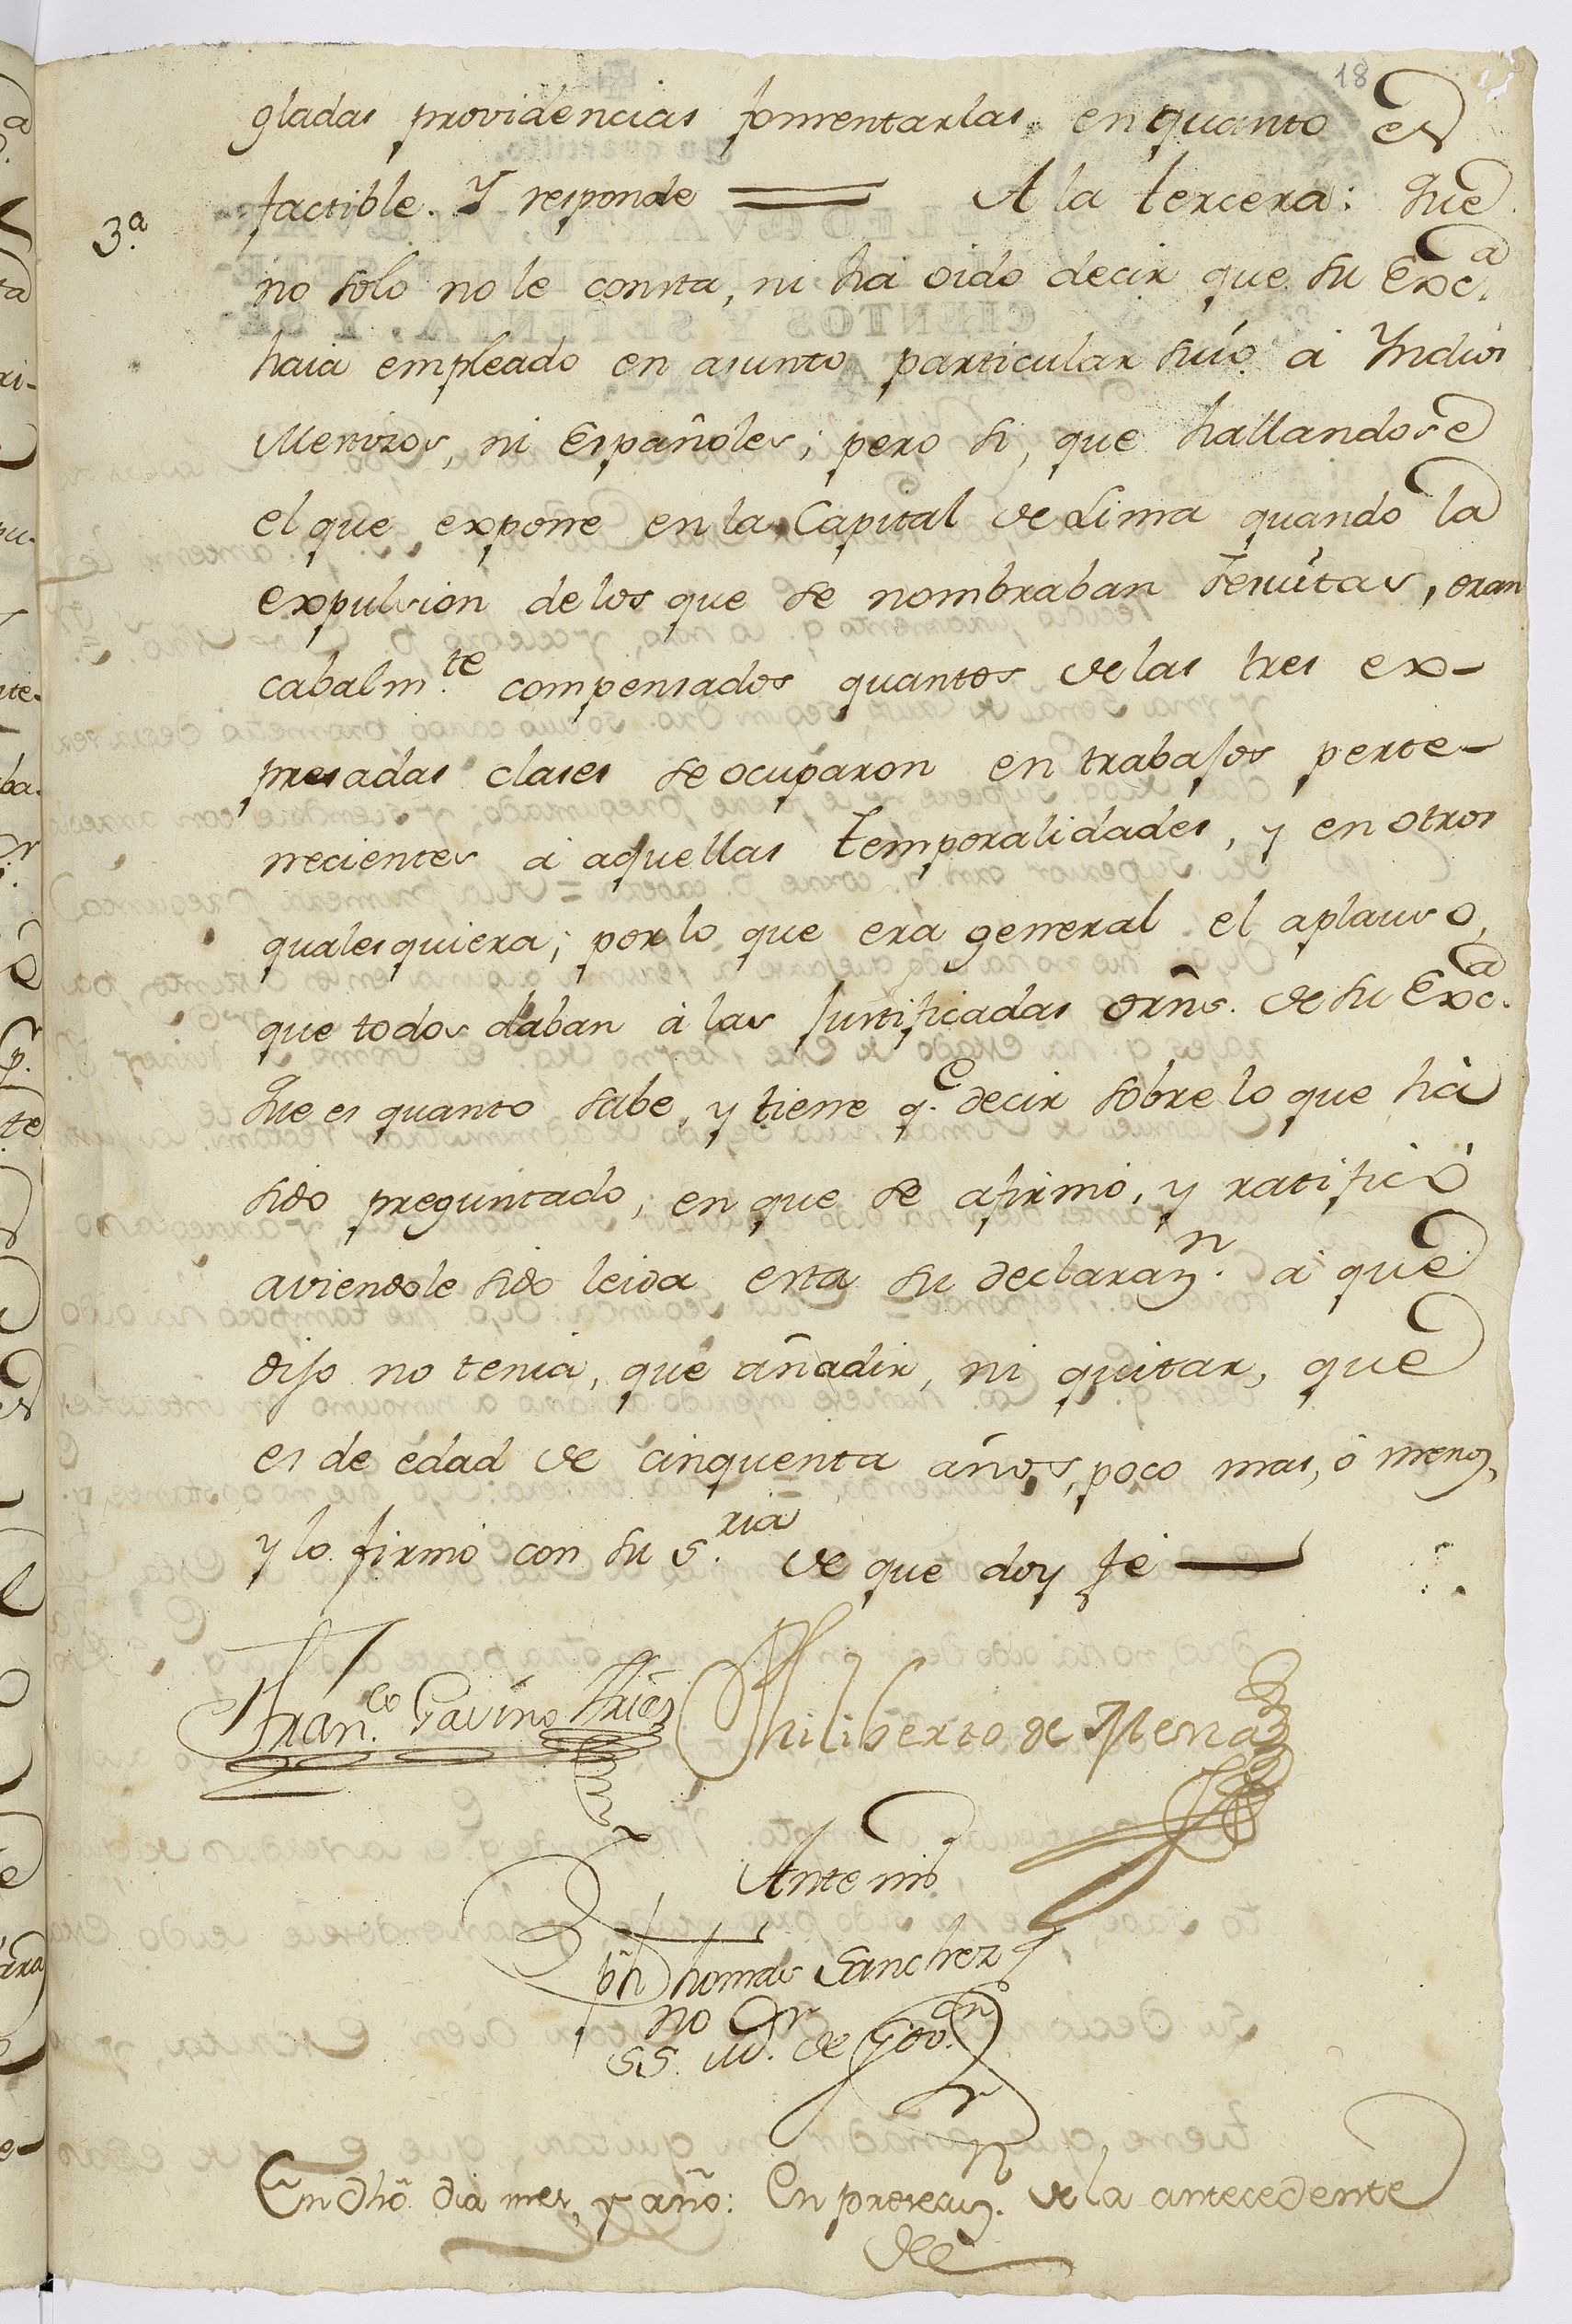 18
gladas providencias fomentarlas, en quanto es
factible. Y responde == A la tercera: Que
3.ª
no solo no le consta, ni há oido decir que su Exc.ª
haia empleado en asunto particular suío á Yndios
Mestizos, ni Españoles; pero si, que hallandose
el que expone en la Capital de Lima quando la
expulsion de los que se nombraban Jesuitas, eran
cabalm.te compensados quantos de las tres ex-
presadas clases se ocuparon en trabajos perte-
necientes á aquellas temporalidades, y en otros
qualesquiera; por lo que era general el aplauso,
que todos daban á las justificadas orñs. de su Exc.ª
Que es quanto sabe, y tiene q.e decir sobre lo que há
sido preguntado, en que se afirmó, y ratificó
aviendole sido leida esta su declaraz.n á que
dijo no tenia, que añadir, ni quitar, que
es de edad de cinquenta años, poco mas, ó menos,
y lo firmó con su S.ria de que doy fé
Fran.co Gavino Arias Philiberto de Mena
Ante mi
Thomas Sanchez
de Gov.on
En dhõ. dia mes, y año: En presecuz.n de la antecedente